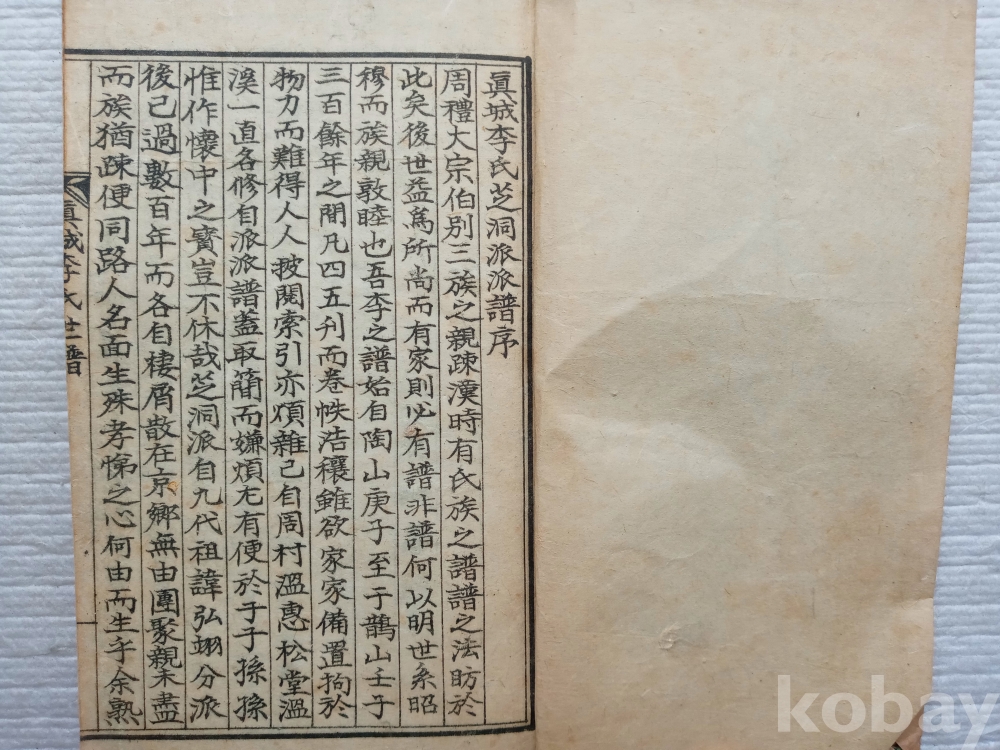 眞城李氏芝洞派派譜序
周禮大宗伯別三族之親疎漢時有氏族之譜譜之法昉於
此矣後世益爲所尚而有家則必有譜非譜何以明世系昭
穆而族親敦睦也吾李之譜始自陶山庚子至于鵲山壬子
三百餘年之間凡四五刋而卷帙浩穰雖欲家家備置拘於
物力而難得人人披閱索引亦煩雜己自周村溫惠松堂溫
溪一直各修自派譜盖取簡而嫌煩尤有便於子子孫孫
惟作懷中之寶豈不休哉芝洞派自九代祖諱弘翊分派
後己過數百年而各自棲屑散在京鄉無由團聚親未盡
而族猶疎便同路人名面生殊孝悌之心何由而生乎余熟
眞城李氏世譜
kobay